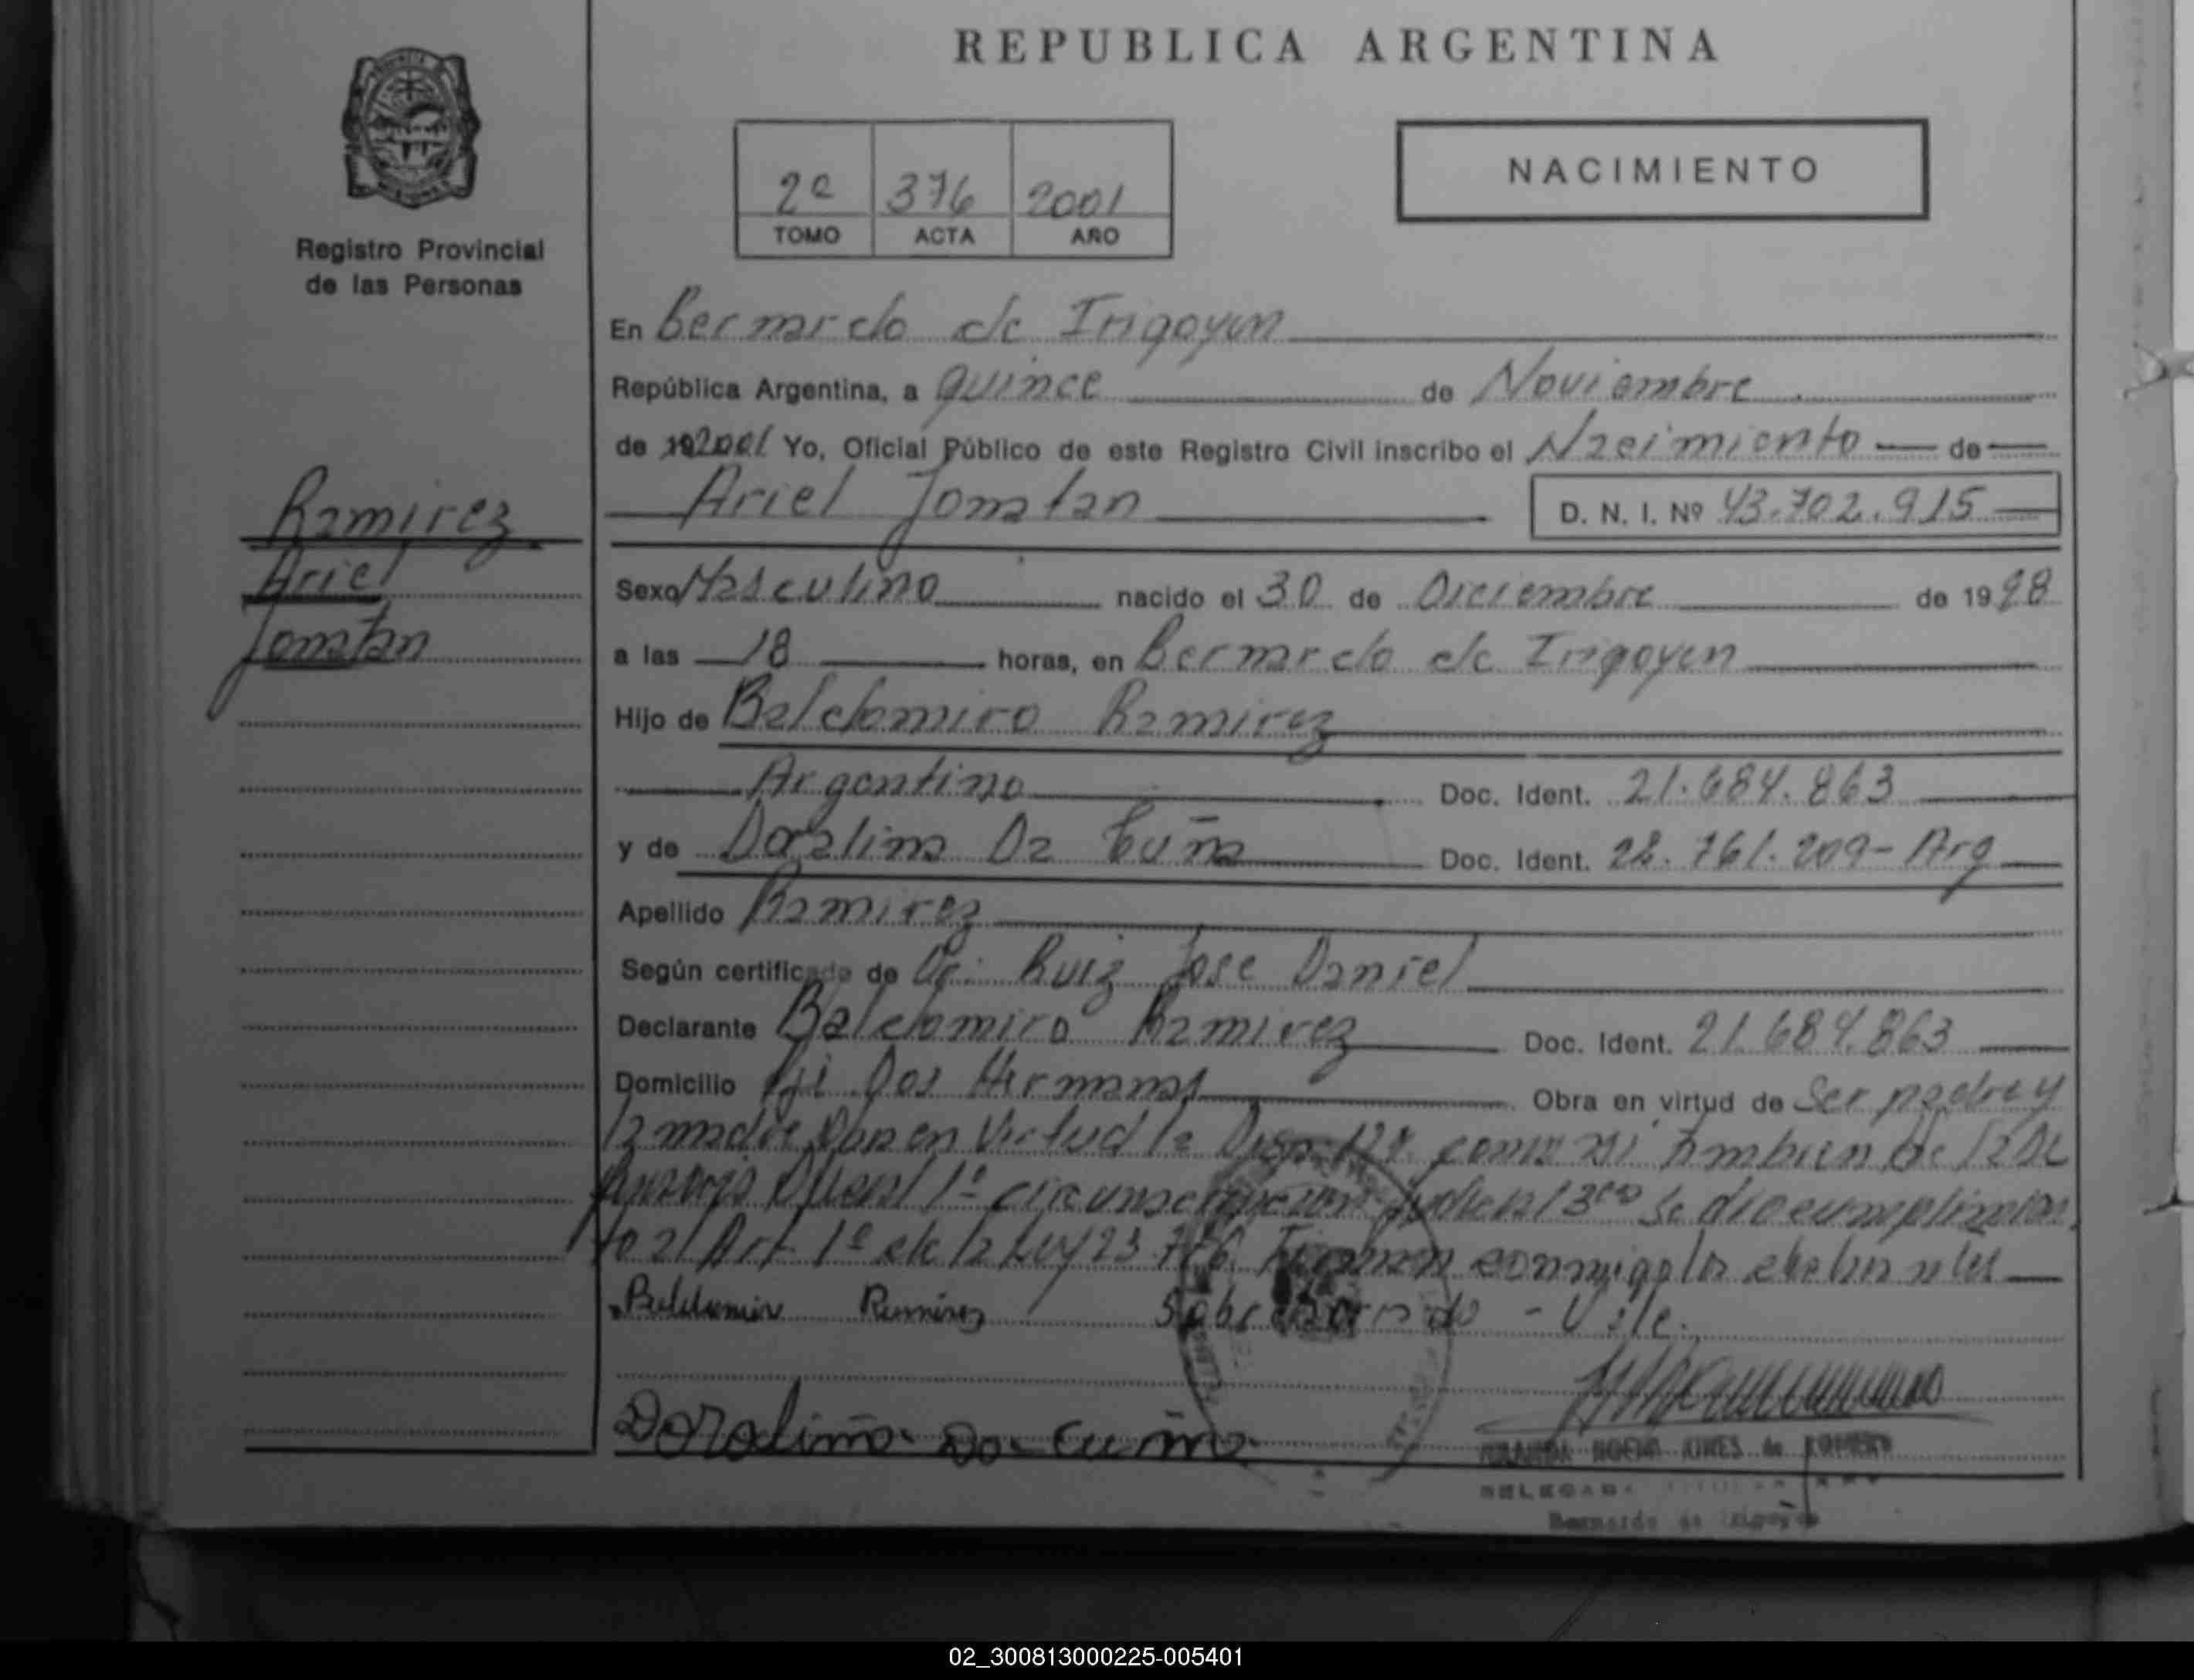 REPUBLICA ARGENTINA
NACIMIENTO
2º 376 2001
TOMO ACTA AÑO
Registro Provincial
de las Personas
Ramirez
Ariel
Jonatan
En Bernardo de Irigoyen
República Argentina, a quince de Noviembre
de 192001 Yo, Oficial Público de este Registro Civil inscribo el Nacimiento de
Ariel Jonatan D. N. I. Nº 43.702.915
Sexo Masculino nacido el 30 de Diciembre de 1998
a las 18 horas, en Bernardo de Irigoyen
Hijo de Baldomiro Ramirez
Argentino Doc. Ident. 21.684.863
y de Doralina Da Cuña Doc. Ident. 28.761.209- Arg
Apellido Ramirez
Según certificado de Dr: Ruiz Jose Daniel
Declarante Baldomiro Ramirez Doc. Ident. 21.684.863
Domicilio Dos Hermanas Obra en virtud de Ser padre y
la madre en Virtud la como asi tambien de la
1ª circunscripcion se dio cumplimien
to al Art. 1º de la Ley 23.776. Firman conmigo los
Ramirez Sobre - Vale.
Doralina Da Cuña
de ROMERO
DELEGADA
Bernardo de Irigoyen
02_300813000225-005401